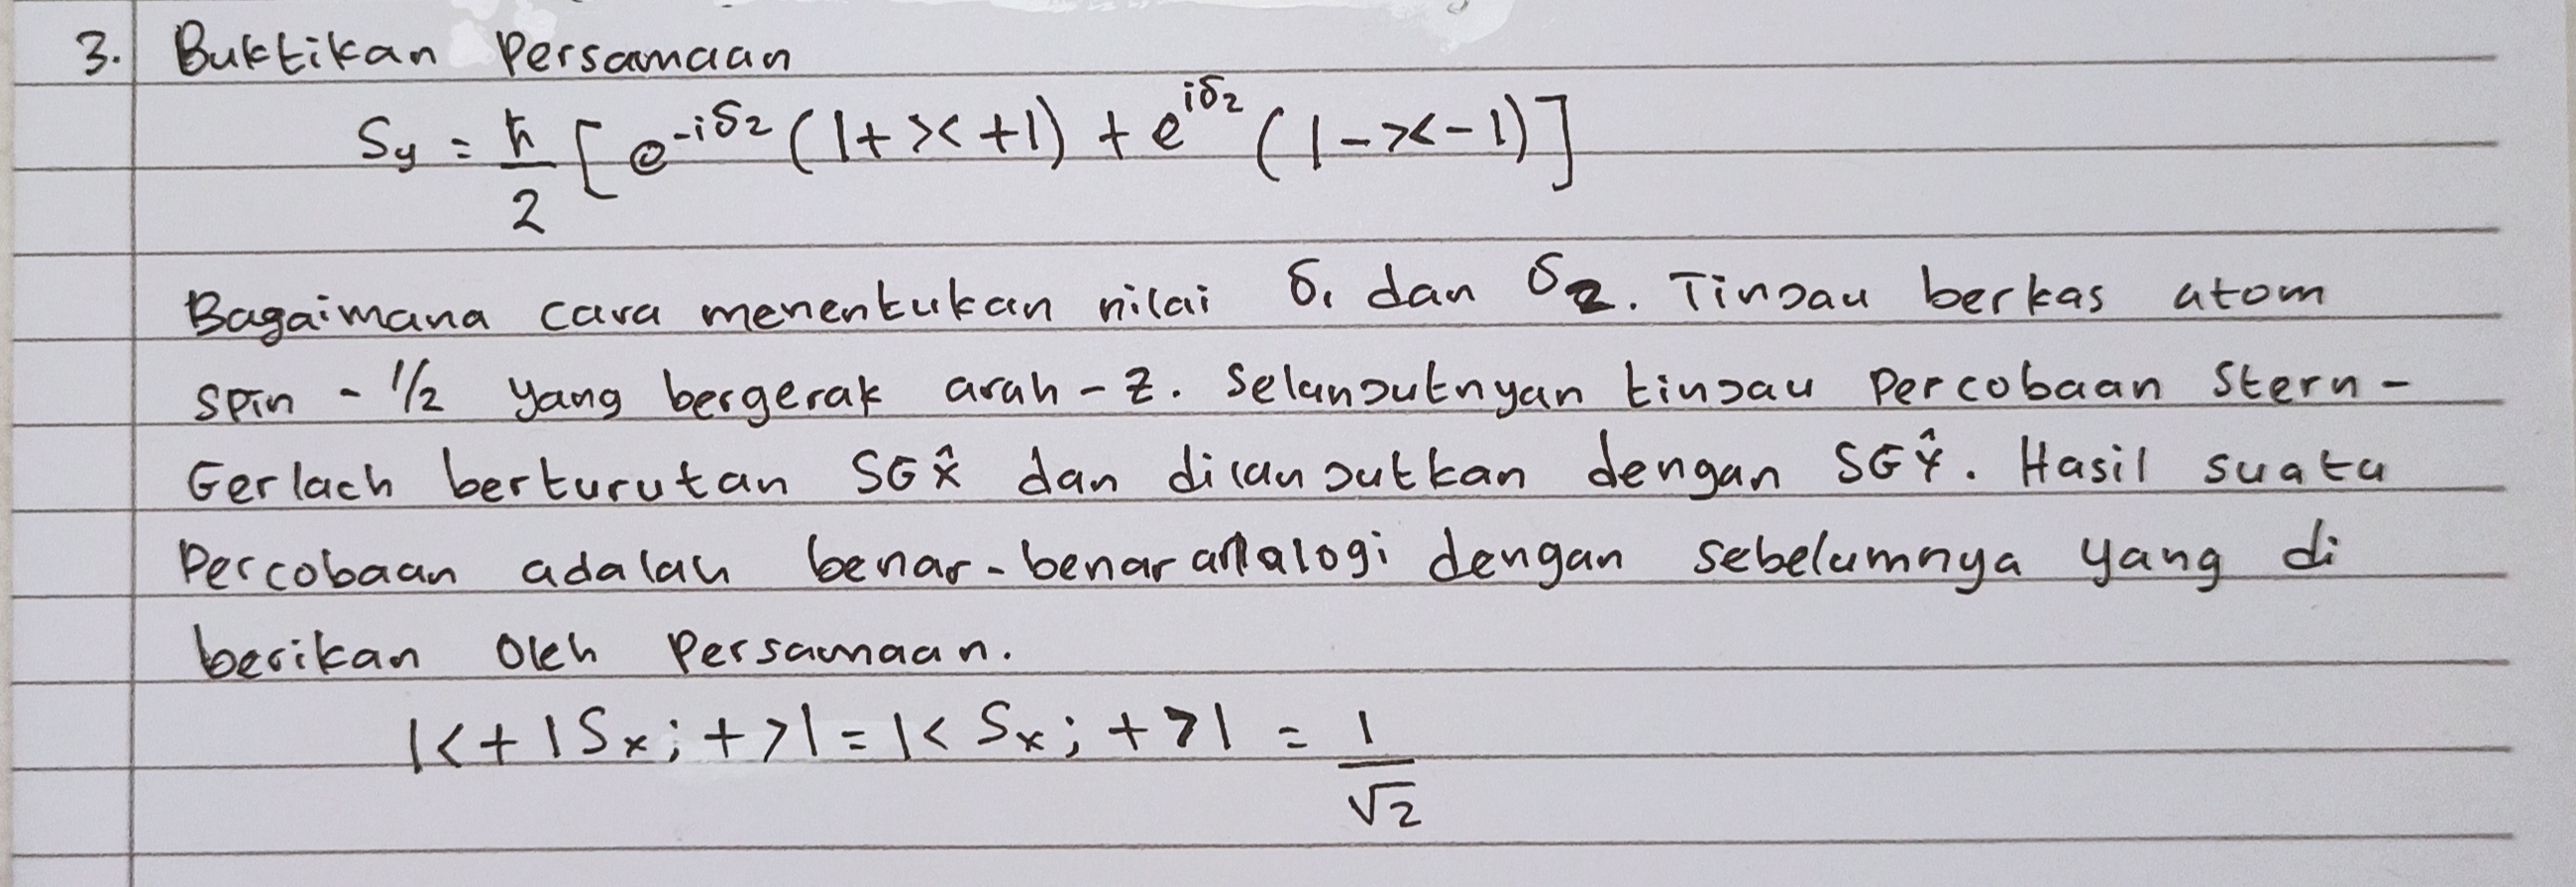 3. Buktikan Persamaan
Sy = ħ/2 [e^-iδ2 (|+><+|) + e^iδ2 (|-><-|)]
Bagaimana cara menentukan nilai δ1 dan δ2. Tinjau berkas atom
spin - 1/2 yang bergerak arah - z. Selanjutnyan tinjau Percobaan Stern-
Gerlach berturutan SGx̂ dan dilanjutkan dengan SGŶ. Hasil suatu
Percobaan adalah benar-benar analogi dengan sebelumnya yang di
berikan oleh Persamaan.
|<+|Sx;+>| = |<Sx;+>| = 1/√2